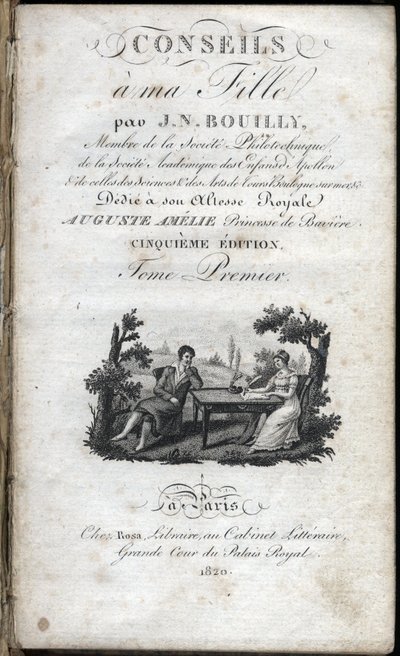 CONSEILS
à ma Fille
par J.N. BOUILLY,
Membre de la Société Philotechnique,
de la Société Académique des Enfans d'Apollon
& de celles des Sciences & des Arts de Tours, Boulogne sur mer &c
Dédié à son Altesse Royale
AUGUSTE AMÉLIE Princesse de Bavière.
CINQUIÈME ÉDITION.
Tome Premier.
à Paris
Chez Rosa, Libraire, au Cabinet Littéraire,
Grande Cour du Palais Royal.
1820.